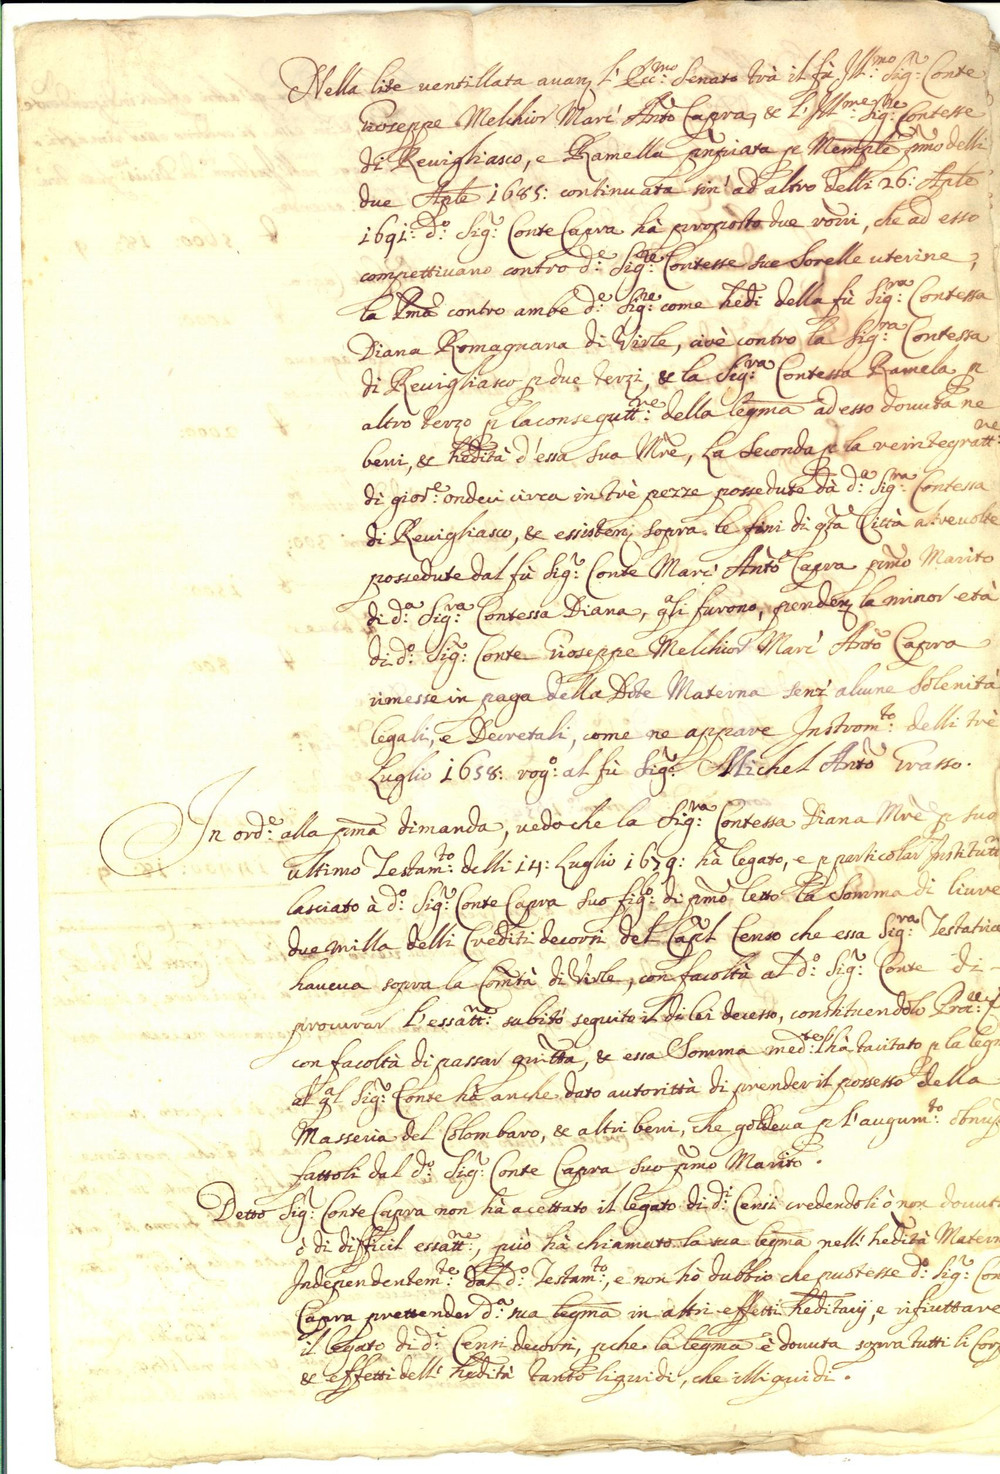 Nella lite ventillata avanti l'Ecc:mo Senato trà il fù Ill:mo Sig:r Conte
Gioseppe Melchior Marc' Ant:o Capra, & l'Ill:me Sig:re Contesse
di Revigliasco, e Ramella p memple pmo delli
due Aple 1685: continuata sin' ad altro delli 26: Aple
1691: d:o Sig:r Conte Capra hà proposto due , che ad esso
compettivano contro d:e Sig:re Contesse sue Sorelle uterine,
la pma contro ambe d:e Sig:re come hedi della fù Sig:ra Contessa
Diana Romagnana di Virle, cioè contro la Sig:ra Contessa
di Revigliasco p due terzi, & la Sig:ra Contessa Ramela p
altro terzo p la consequtt:ne della legma ad esso dovuta ne
beni, & hedità d'essa sua Mre, La Seconda p la reintegratt:ne
di gior:e ondeci circa in trè pezze possedute dà d:a Sig:ra Contessa
di Revigliasco, & essistenti sopra le fini di qta Città altrevolte
possedute dal fù Sig:r Conte Marc' Ant:o Capra pmo Marito
di d:a Sig:ra Contessa Diana, qli furono, pendente la minor età
di d:o Sig:r Conte Gioseppe Melchior Marc' Ant:o Capra
rimesse in paga della Dote Materna senz' alcune Solenità
legali, e Decretali, come ne appare Instrom:to delli trè
Luglio 1658: rog:o al fù Sig:r Michel Ant:o Grasso.
In ord:e alla pma dimanda, vedo che la Sig:ra Contessa Diana Mre p suo
ultimo Testam:to delli 14: Luglio 1679: hà legato, e p particolar Instituto
lasciato à d:o Sig:r Conte Capra suo fig:o di pmo letto la Somma di livre
due milla delli Crediti decorsi del Capl Censo che essa Sig:ra Testatrice
haveva sopra la Comtà di Virle, con facoltà al d:o Sig:r Conte di
procurar l'essatt:ne subito seguito il di lei decesso, constituendolo
con facoltà di passar quitta, & essa Somma med:ma hà tacitato p la legma
al ql Sig:r Conte hà anche dato autorittà di prender il possesso della
Masseria del Colombaro, & altri beni, che godeva p l'augum:to
fattoli dal d:o Sig:r Conte Capra suo pmo Marito.
Detto Sig:r Conte Capra non hà acettato il legato di d:i Censi credendoli ò non dovuti
ò di difficil essatt:ne, più hà chiamato la sua legma nell' hedità Materna
Independentem:te dal d:o Testam:to, e non hò dubbio che pottesse d:o Sig:r Conte
Capra prettender d:a sua legma in altri effetti heditarij, e rifiuttare
il legato di d:i Censi decorsi, pche la legma è dovuta sopra tutti li Corpi
& effetti dell' hedità tanto liquidi, che illiquidi.